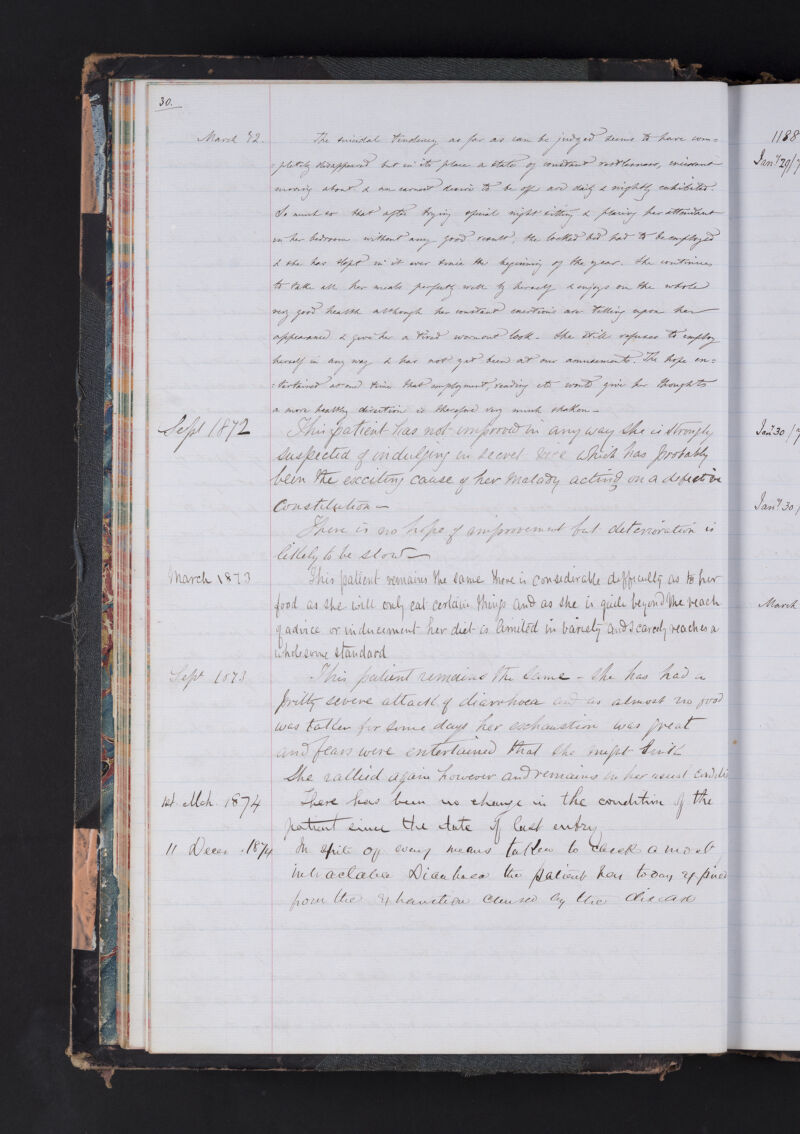 30.
March 72. The suicidal tendency as far as can be judged seems to have com=
=pletely disappeared but in its place a state of constant restlessness, incessant
moving about & an earnest desire to be off are daily & nightly exhibited.
So much so that after trying special night sitting & placing her attendant
in her bedroom without any good result, the locked bed had to be employed
& she has slept in it ever since the beginning of the year. She continues
to take all her meals perfectly well by herself & enjoys on the whole
very good health although her constant exertions are telling upon her
appearance & give her a tired wornout look. She still refuses to employ
herself in any way & has not yet been at our amusements. The hope en=
=tertained at one time that employment, reading etc would give her thoughts
a more healthy direction is therefore very much shaken.
Sept 1872 This patient has not improved in any way she is strongly
suspected of indulging in secret vice which has probably
been the exciting cause of her malady acting on a defective
constitution—
There is no hope of improvement but deterioration is
likely to be slow—
March 1873 This patient remains the same there is considerable difficulty as to her
food as she will only eat certain things and as she is quite beyond the reach
of advice or inducement her diet is limited in variety and scarcely reaches a
wholesome standard
Sept 1873 This patient remains the same - she has had a
pretty severe attack of diarrhoea and as almost no food
was taken for some days her exhaustion was great
and fears were entertained that she might sink
She rallied again however and remains in her usual
1st Mch. 1874 There has been no change in the condition of the
patient since the date of last entry
11 Decer. 1874 In spite of every means taken to check a most
intractable Diarrhea the patient has today expired
from the exhaustion caused by the disease
1188
Jany 29/7
Jany 30/7
Jany 30/
March